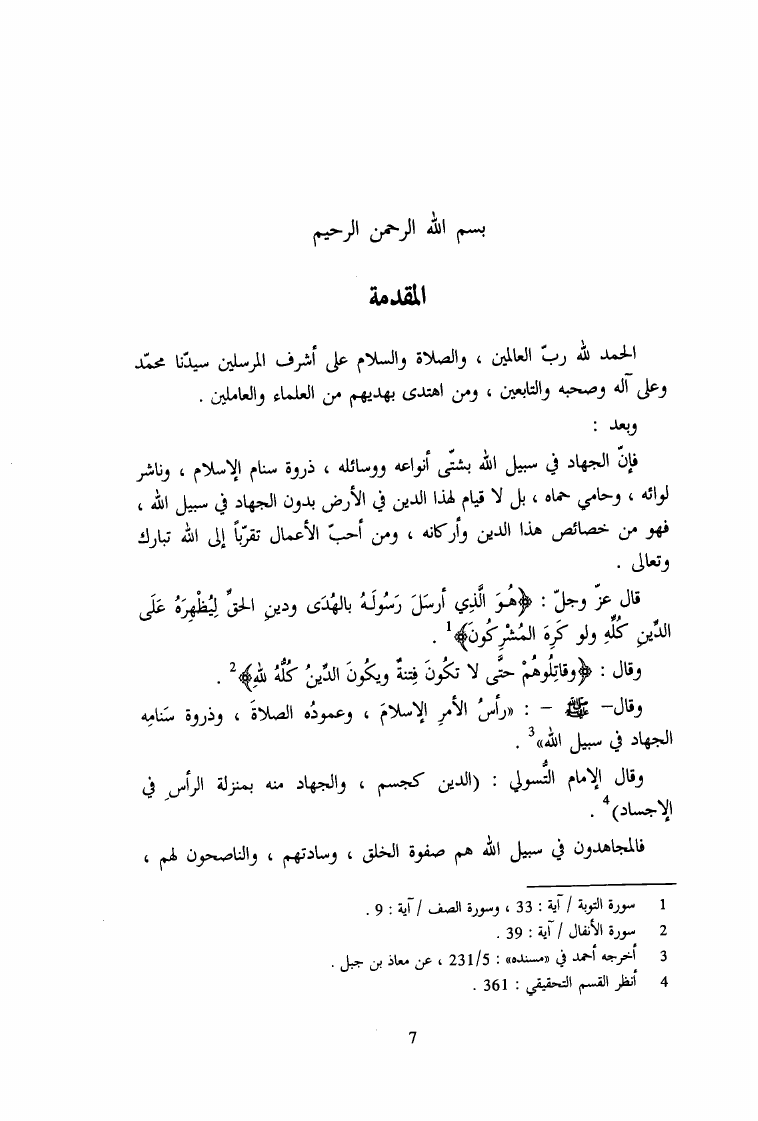 بسم الله الرحمن الرحيم
المقدمة
الحمد لله ربّ العالمين ، والصلاة والسلام على أشرف المرسلين سيدّنا محمّد
وعلى آله وصحبه والتابعين ، ومن اهتدى بهديهم من العلماء والعاملين .
وبعد :
فإنّ الجهاد في سبيل الله بشتّى أنواعه ووسائله ، ذروة سنام الإسلام ، وناشر
لوائه ، وحامي حماه ، بل لا قيام لهذا الدين في الأرض بدون الجهاد في سبيل الله ،
فهو من خصائص هذا الدين وأركانه ، ومن أحبّ الأعمال تقرّباً إلى الله تبارك
وتعالى .
قال عزّ وجلّ : ﴿هُوَ الَّذِي أرسَلَ رَسُولَهُ بالهُدَى ودينِ الحَقِّ لِيُظْهِرَهُ عَلَى
الدِّينِ كُلِّهِ ولو كَرِهَ المُشْرِكُونَ﴾1 .
وقال : ﴿وقاتِلُوهُمْ حتَّى لا تكُونَ فِتنةٌ ويكُونَ الدِّينُ كُلُّهُ للهِ﴾2 .
وقال– ﷺ – : «رأسُ الأمرِ الإسلامَ ، وعمودُه الصلاةَ ، وذروة سَنامِه
الجهاد في سبيل الله»3 .
وقال الإمام التُّسولي : (الدين كجسم ، والجهاد منه بمنزلة الرأس في
الإجساد)4 .
فالمجاهدون في سبيل الله هم صفوة الخلق ، وسادتهم ، والناصحون لهم ،
1 سورة التوبة / آية : 33 ، وسورة الصف / آية : 9 .
2 سورة الأنفال / آية : 39 .
3 أخرجه أحمد في «مسنده» : 231/5 ، عن معاذ بن جبل .
4 أنظر القسم التحقيقي : 361 .
7